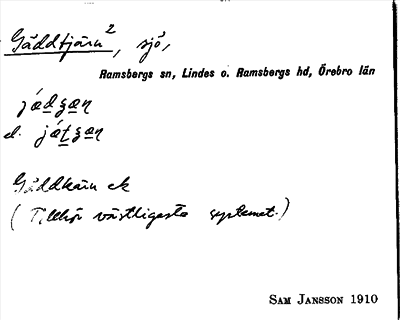 Gäddtjärn², sjö,
Ramsbergs sn, Lindes o. Ramsbergs hd, Örebro län
el.
Gäddkärn ek
(Tillhör västligaste systemet.)
SAM JANSSON 1910